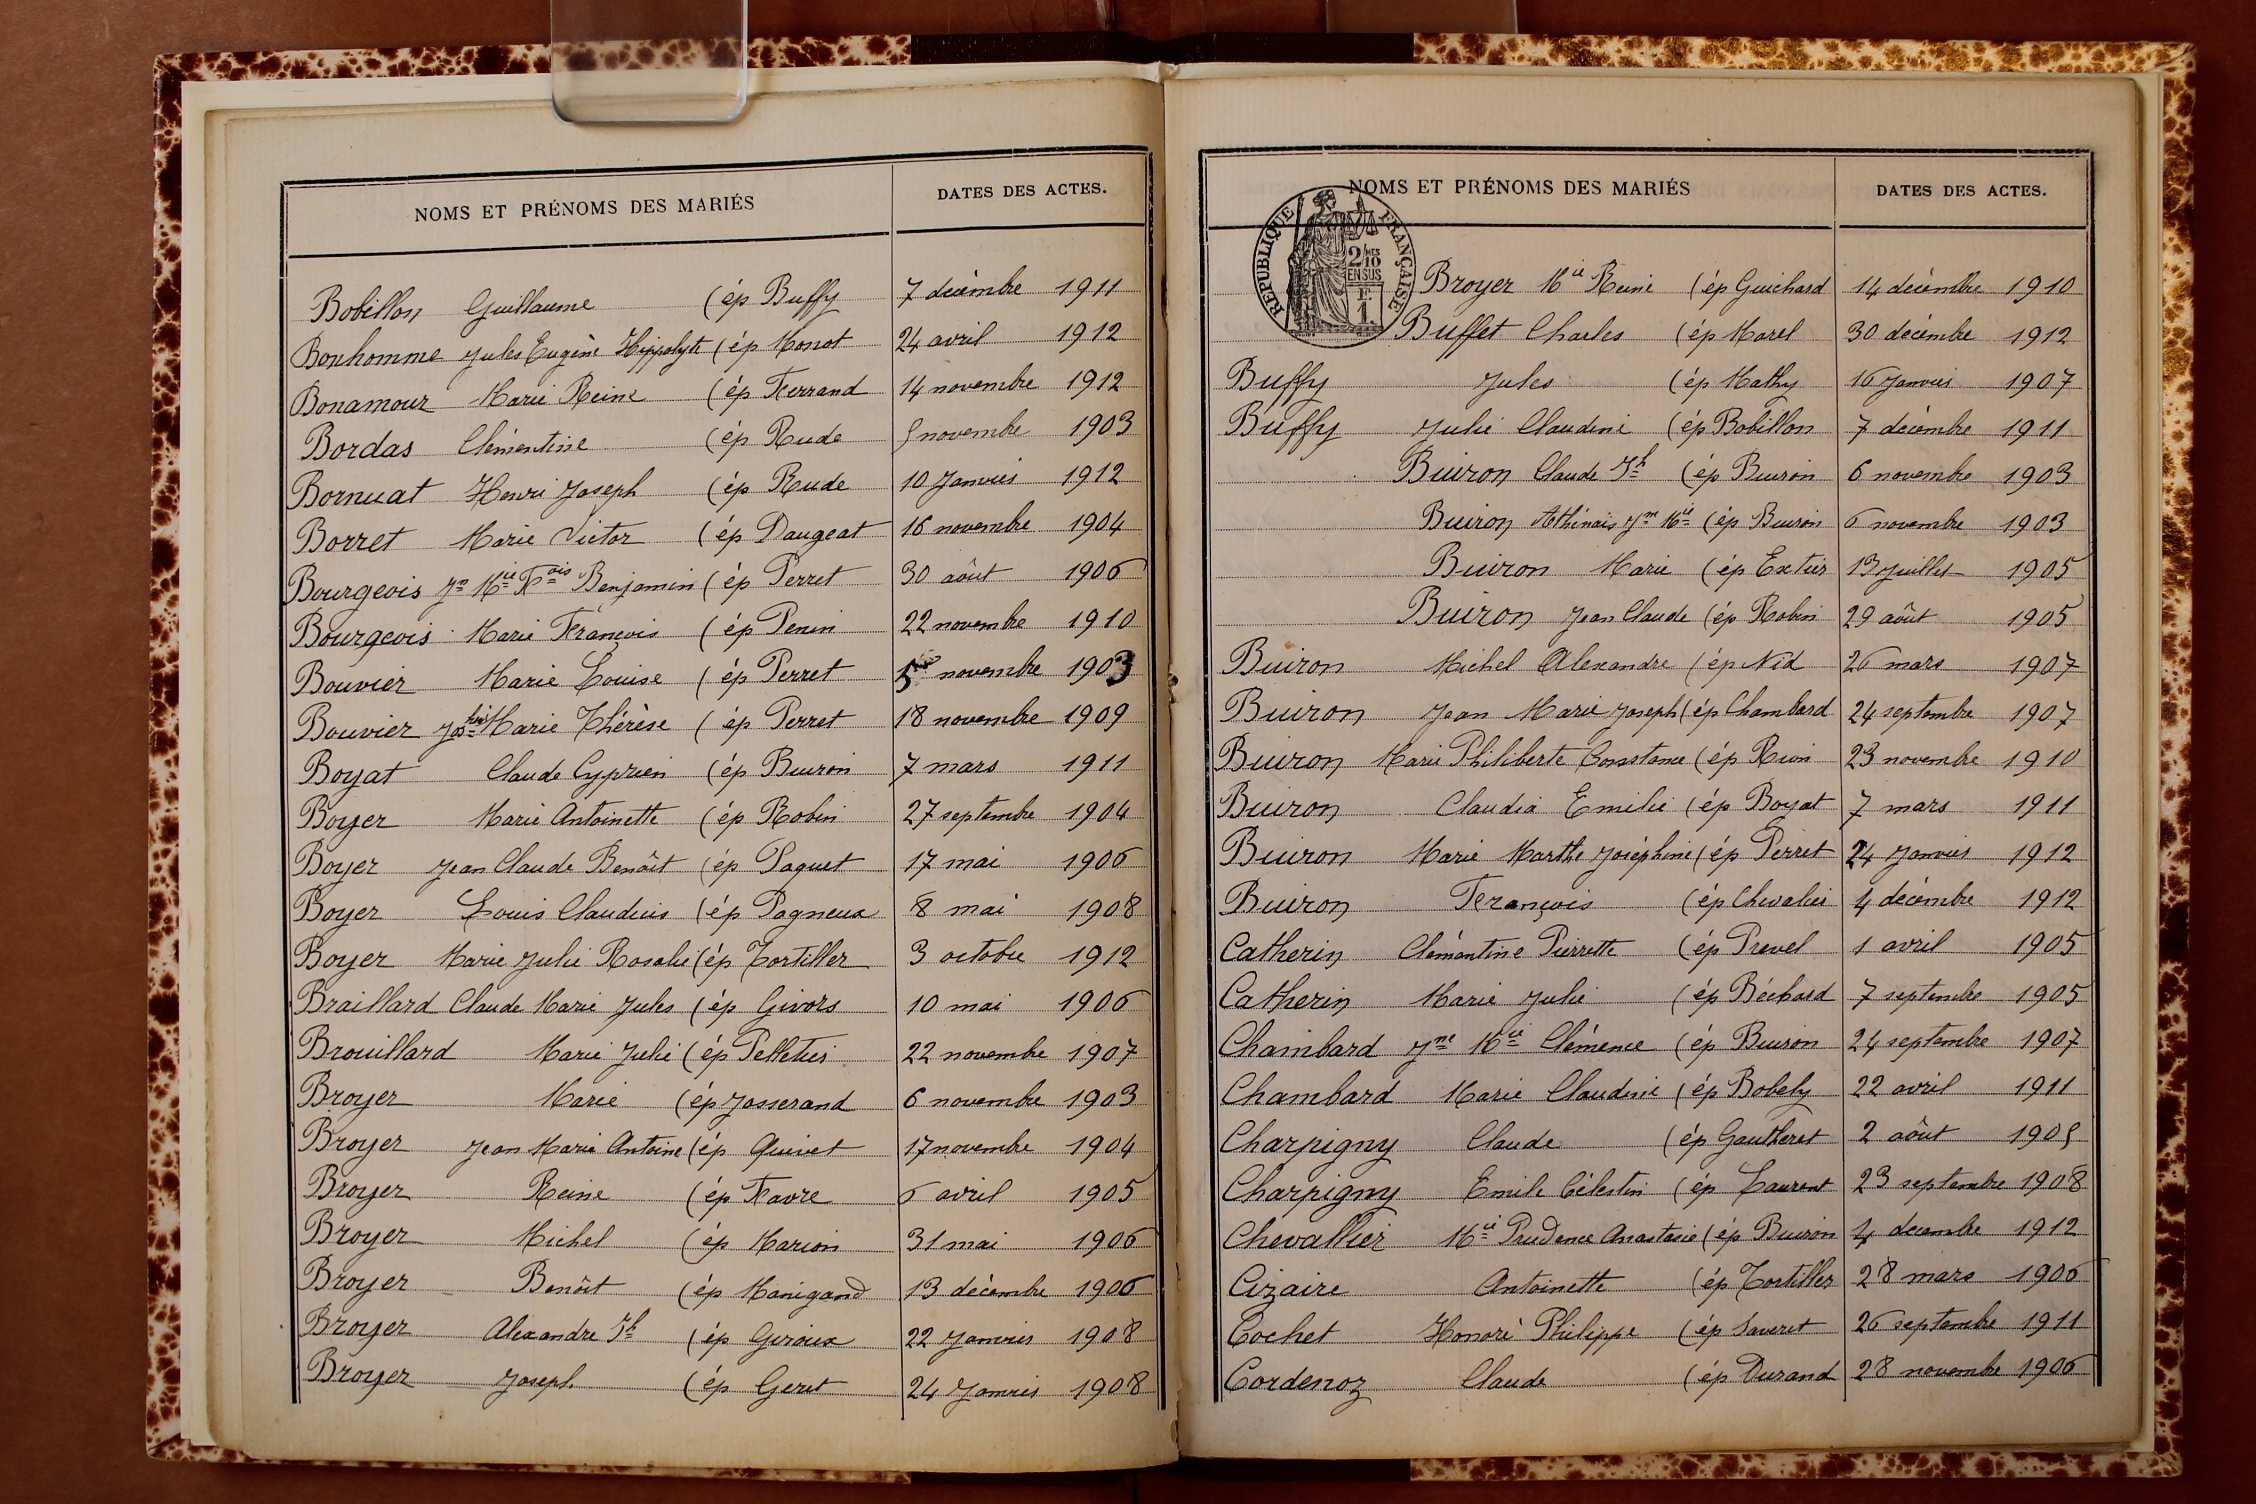 NOMS ET PRÉNOMS DES MARIÉS DATES DES ACTES.
Bobillon Guillaume (ép Buffy 7 décembre 1911
Bonhomme Jules Eugène Hippolyte (ép Monot 24 avril 1912
Bonamour Marie Reine (ép Ferrand 14 novembre 1912
Bordas Clémentine (ép Rude 5 novembre 1903
Bornuat Henri Joseph (ép Rude 10 Janvier 1912
Borret Marie Victor (ép Daugeat 16 novembre 1904
Bourgeois Jn Mie Fois Benjamin (ép Perret 30 août 1906
Bourgeois Marie François (ép Penin 22 novembre 1910
Bouvier Marie Louise (ép Perret 5 novembre 1903
Bouvier Josphie Marie Thérèse (ép Perret 18 novembre 1909
Boyat Claude Cyprien (ép Buiron 7 mars 1911
Boyer Marie Antoinette (ép Robin 27 septembre 1904
Boyer Jean Claude Benoît (ép Paquet 17 mai 1906
Boyer Louis Claudius (ép Pagneux 8 mai 1908
Boyer Marie Julie Rosalie (ép Tortiller 3 octobre 1912
Braillard Claude Marie Jules (ép Givors 10 mai 1906
Brouillard Marie Julie (ép Pelletier 22 novembre 1907
Broyer Marie (ép Josserand 6 novembre 1903
Broyer Jean Marie Antoine (ép Quivet 17 novembre 1904
Broyer Reine (ép Favre 6 avril 1905
Broyer Michel (ép Marion 31 mai 1906
Broyer Benoît (ép Manigand 13 décembre 1906
Broyer Alexandre Jh (ép Giroux 22 Janvier 1908
Broyer Joseph (ép Geret 24 Janvier 1908
NOMS ET PRÉNOMS DES MARIÉS DATES DES ACTES.
RÉPUBLIQUE FRANÇAISE
2/10
EN SUS
F.
1.
Broyer Mie Reine (ép Guichard 14 décembre 1910
Buffet Charles (ép Morel 30 décembre 1912
Buffy Jules (ép Mathy 16 Janvier 1907
Buffy Julie Claudine (ép Bobillon 7 décembre 1911
Buiron Claude Jh (ép Buiron 6 novembre 1903
Buiron Athénais Jne Mie (ép Buiron 6 novembre 1903
Buiron Marie (ép Extier 13 Juillet 1905
Buiron Jean Claude (ép Robin 29 août 1905
Buiron Michel Alexandre (ép Nid 26 mars 1907
Buiron Jean Marie Joseph (ép Chambard 24 septembre 1907
Buiron Marie Philiberte Constance (ép Rion 23 novembre 1910
Buiron Claudia Emilie (ép Boyat 7 mars 1911
Buiron Marie Marthe Joséphine (ép Perret 24 Janvier 1912
Buiron François (ép Chevalier 4 décembre 1912
Catherin Clémentine Pierrette (ép Prevel 1 avril 1905
Catherin Marie Julie (ép Béchard 7 septembre 1905
Chambard Jne Mie Clémence (ép Buiron 24 septembre 1907
Chambard Marie Claudine (ép Bobely 22 avril 1911
Charpigny Claude (ép Gautheret 2 août 1905
Charpigny Emile Célestin (ép Laurent 23 septembre 1908
Chevallier Mie Prudence Anastasie (ép Buiron 4 décembre 1912
Cizaire Antoinette (ép Tortiller 28 mars 1906
Cochet Honoré Philippe (ép Saveret 26 septembre 1911
Cordenoz Claude (ép Durand 28 novembre 1906